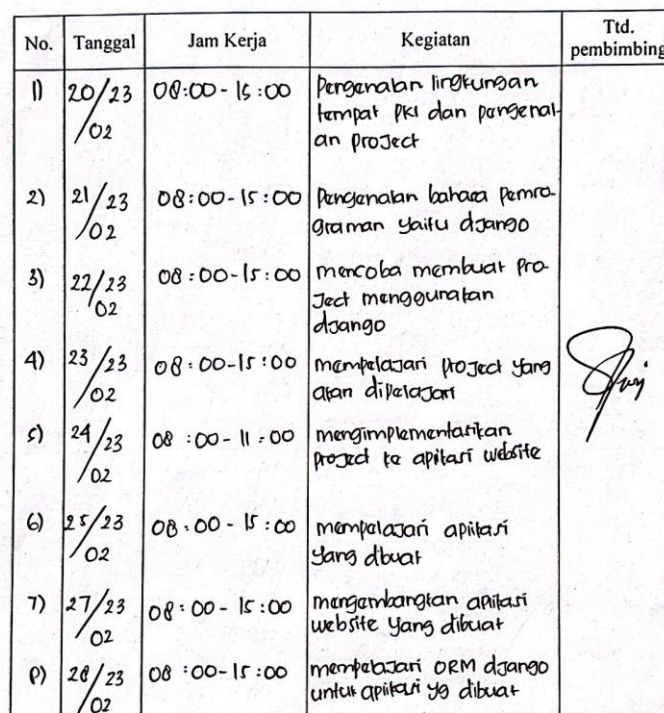 No. Tanggal Jam Kerja Kegiatan Ttd. pembimbing
1) 20/02/23 08:00 - 15:00 Pengenalan lingkungan
tempat PKl dan pengenal-
an project
2) 21/02/23 08:00 - 15:00 Pengenalan bahasa pemro-
graman yaitu django
3) 22/02/23 08:00 - 15:00 mencoba membuat pro-
ject menggunakan
django
4) 23/02/23 08:00 - 15:00 mempelajari project yang
akan dipelajari
5) 24/02/23 08:00 - 11:00 mengimplementasikan
project ke aplikasi website
6) 25/02/23 08:00 - 15:00 mempelajari aplikasi
yang dbuat
7) 27/02/23 08:00 - 15:00 mengembangkan aplikasi
website yang dibuat
8) 28/02/23 08:00 - 15:00 mempelajari ORM django
untuk aplikasi yg dibuat